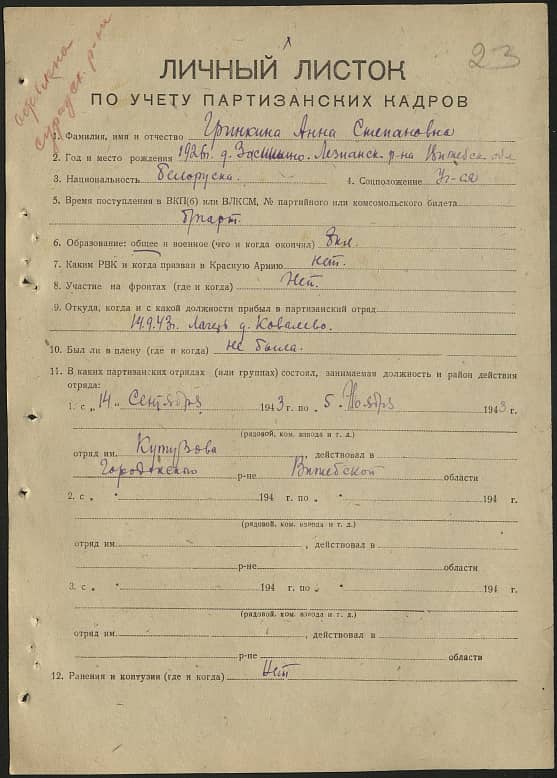 23
ЛИЧНЫЙ ЛИСТОК
ПО УЧЕТУ ПАРТИЗАНСКИХ КАДРОВ
1. Фамилия, имя и отчество Гринкина Анна Степановна
2. Год и место рождения 1926г. д. Лезнанск. р-на Витебск. обл
3. Национальность белоруска. 4. Соцположение Уч-ся
5. Время поступления в ВКП(б) или ВЛКСМ, № партийного или комсомольского билета
б/парт.
6. Образование: общее и военное (что и когда окончил) 8кл.
7. Каким РВК и когда призван в Красную Армию нет.
8. Участие на фронтах (где и когда) Нет.
9. Откуда, когда и с какой должности прибыл в партизанский отряд
14.9.43г. Лагерь д. Ковалево.
10. Был ли в плену (где и когда) не была.
11. В каких партизанских отрядах (или группах) состоял, занимаемая должность и район действия
отряда:
1. с „ 14 “ Сентября 1943 г. по „ 5 „ Ноября 1943 г.
(рядовой, ком. взвода и т. д.)
отряд им. Кутузова, действовал в
Городокского р-не Витебской области
2. с „ “ 194 г. по „ “ 194 г.
(рядовой, ком. взвода и т. д.)
отряд им. , действовал в
р-не области
3. с „ “ 194 г. по „ “ 194 г.
(рядовой, ком. взвода и т. д.)
отряд им. , действовал в
р-не области
12. Ранения и контузии (где и когда) Нет